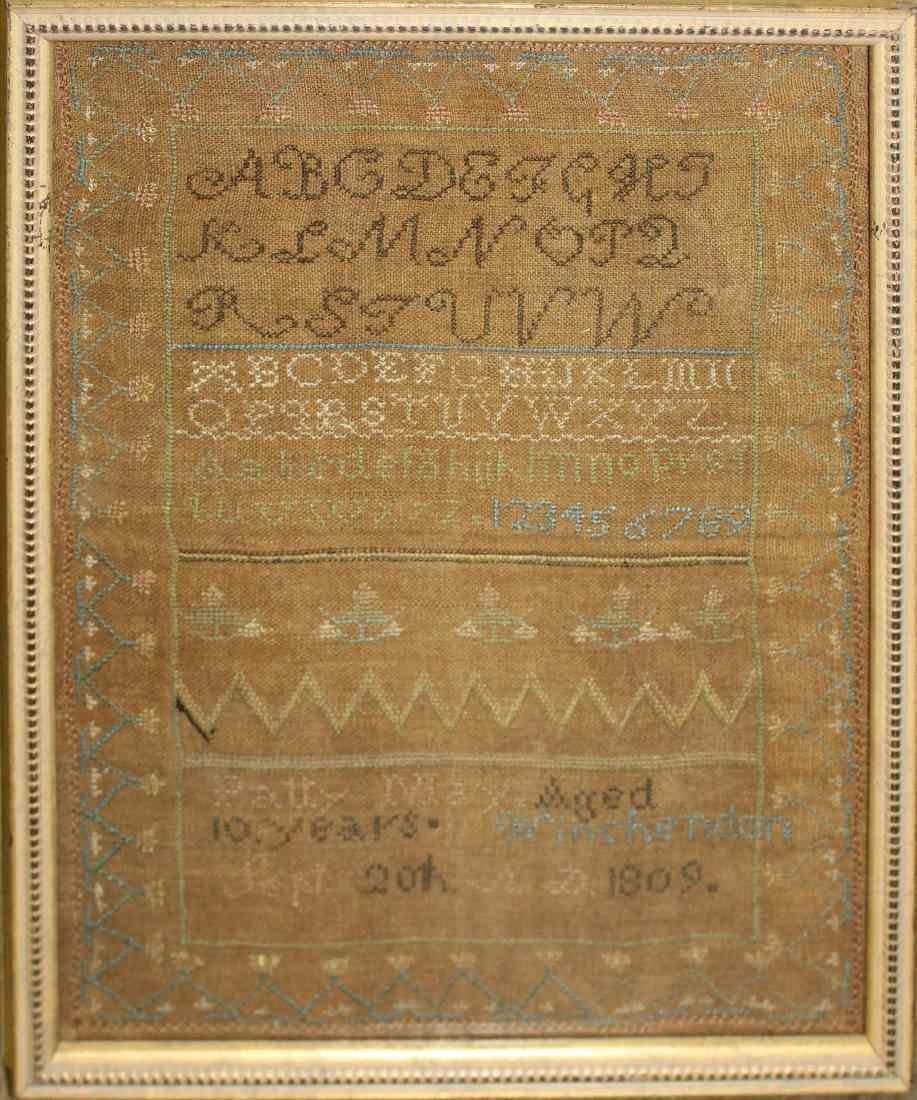 A B C D E F G H I
K L M N O P Q
R S T U V W
A B C D E F G H I J K L M N
O P Q R S T U V W X Y Z
A a b c d e f g h i j k l m n o p r s
t u v w x y z . 1 2 3 4 5 6 7 8 9
May Aged
10. years. Winchendon
Sept 20th A D 1809.